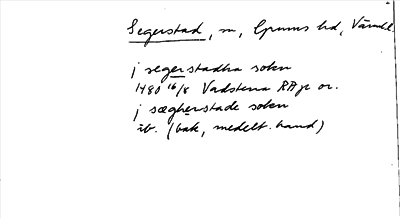 Segerstad, sn, Grums hd, Värml.
j segerstadha sokn
1480 16/8 Vadstena RAp or.
j sægherstade sokn
ib. (bak, medelt. hand)